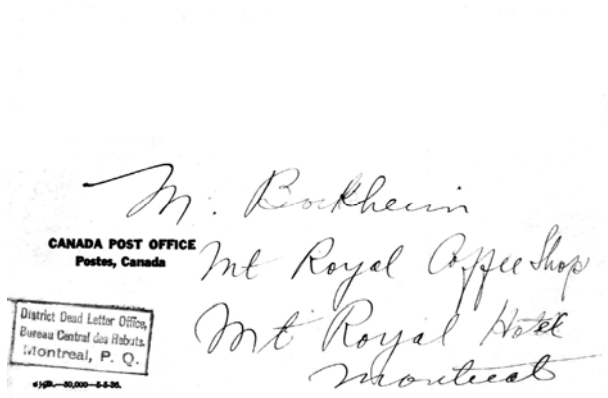 M. Bockheim
CANADA POST OFFICE
Postes, Canada
Mt Royal Coffee Shop
Mt Royal Hotel
Montreal
District Dead Letter Office,
Bureau Central des Rebuts.
Montreal, P. Q.
50,000—5-5-36.